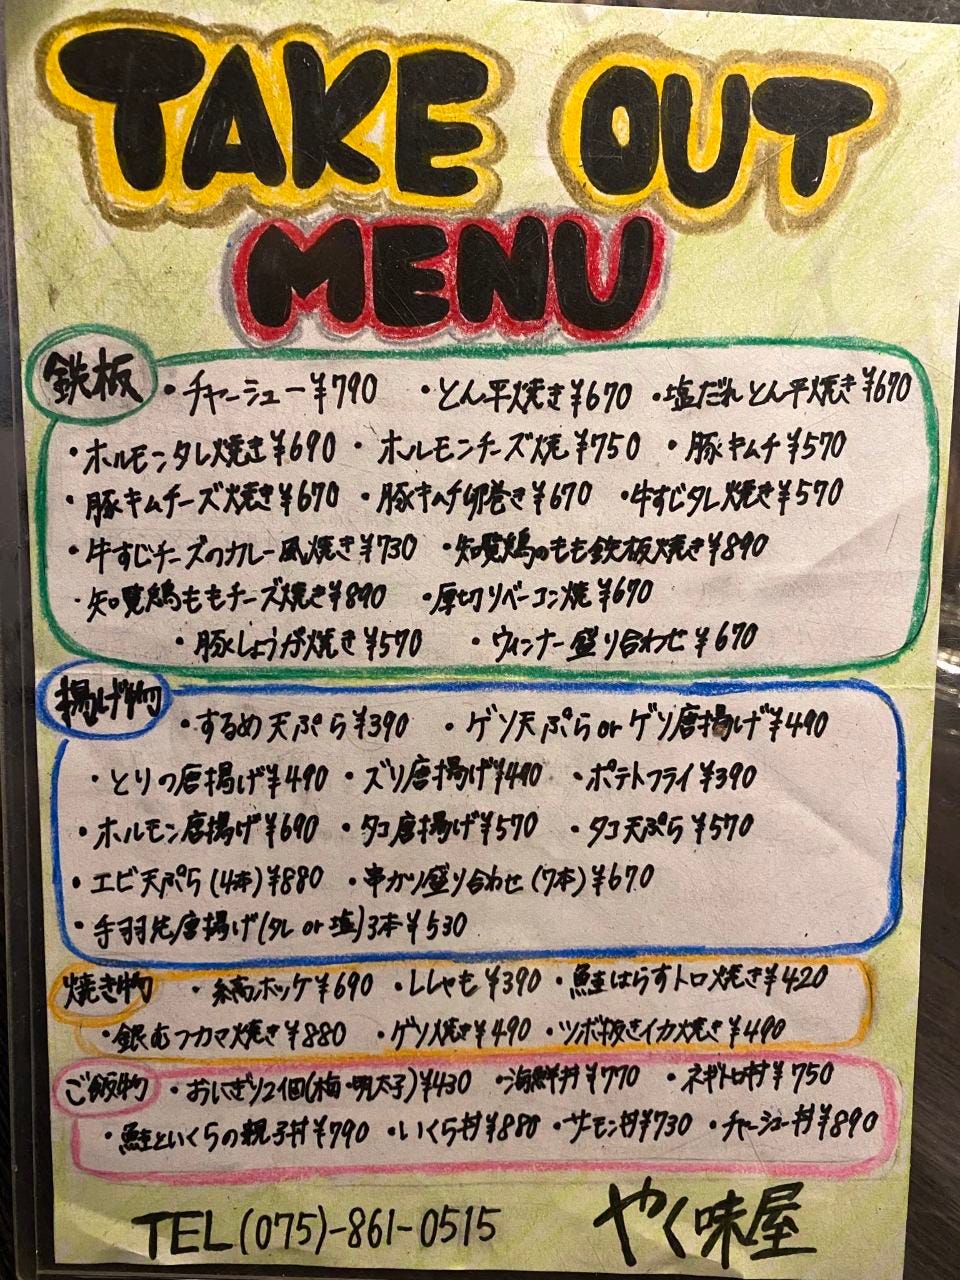 TAKE OUT
MENU
鉄板
・チャーシュー¥790 ・とん平焼き¥670 ・塩だれとん平焼き¥670
・ホルモンタレ焼き¥690 ・ホルモンチーズ焼¥750 ・豚キムチ¥570
・豚キムチーズ焼き¥670 ・豚キムチ卵巻き¥670 ・牛すじタレ焼き¥570
・牛すじチーズのカレー風焼き¥730 ・知覧鶏のもも鉄板焼き¥890
・知覧鶏ももチーズ焼き¥890 ・厚切りベーコン焼¥670
・豚しょうが焼き¥570 ・ウィンナー盛り合わせ¥670
揚げ物
・するめ天ぷら¥390 ・ゲソ天ぷらorゲソ唐揚げ¥490
・とりの唐揚げ¥490 ・ズリ唐揚げ¥490 ・ポテトフライ¥390
・ホルモン唐揚げ¥690 ・タコ唐揚げ¥570 ・タコ天ぷら¥570
・エビ天ぷら(4本)¥880 ・串カツ盛り合わせ(7本)¥670
・手羽先唐揚げ(タレ or 塩)3本¥530
焼き物 ・縞ホッケ¥690 ・ししゃも¥390 ・鮭はらすトロ焼き¥420
・銀むつカマ焼き¥880 ・ゲソ焼き¥490 ・ツボ抜きイカ焼き¥490
ご飯物 ・おにぎり2個(梅・明太子)¥430 ・海鮮丼¥770 ・ネギトロ丼¥750
・鮭といくらの親子丼¥790 ・いくら丼¥880 ・サーモン丼¥730 ・チャーシュー丼¥890
TEL(075)-861-0515 やく味屋